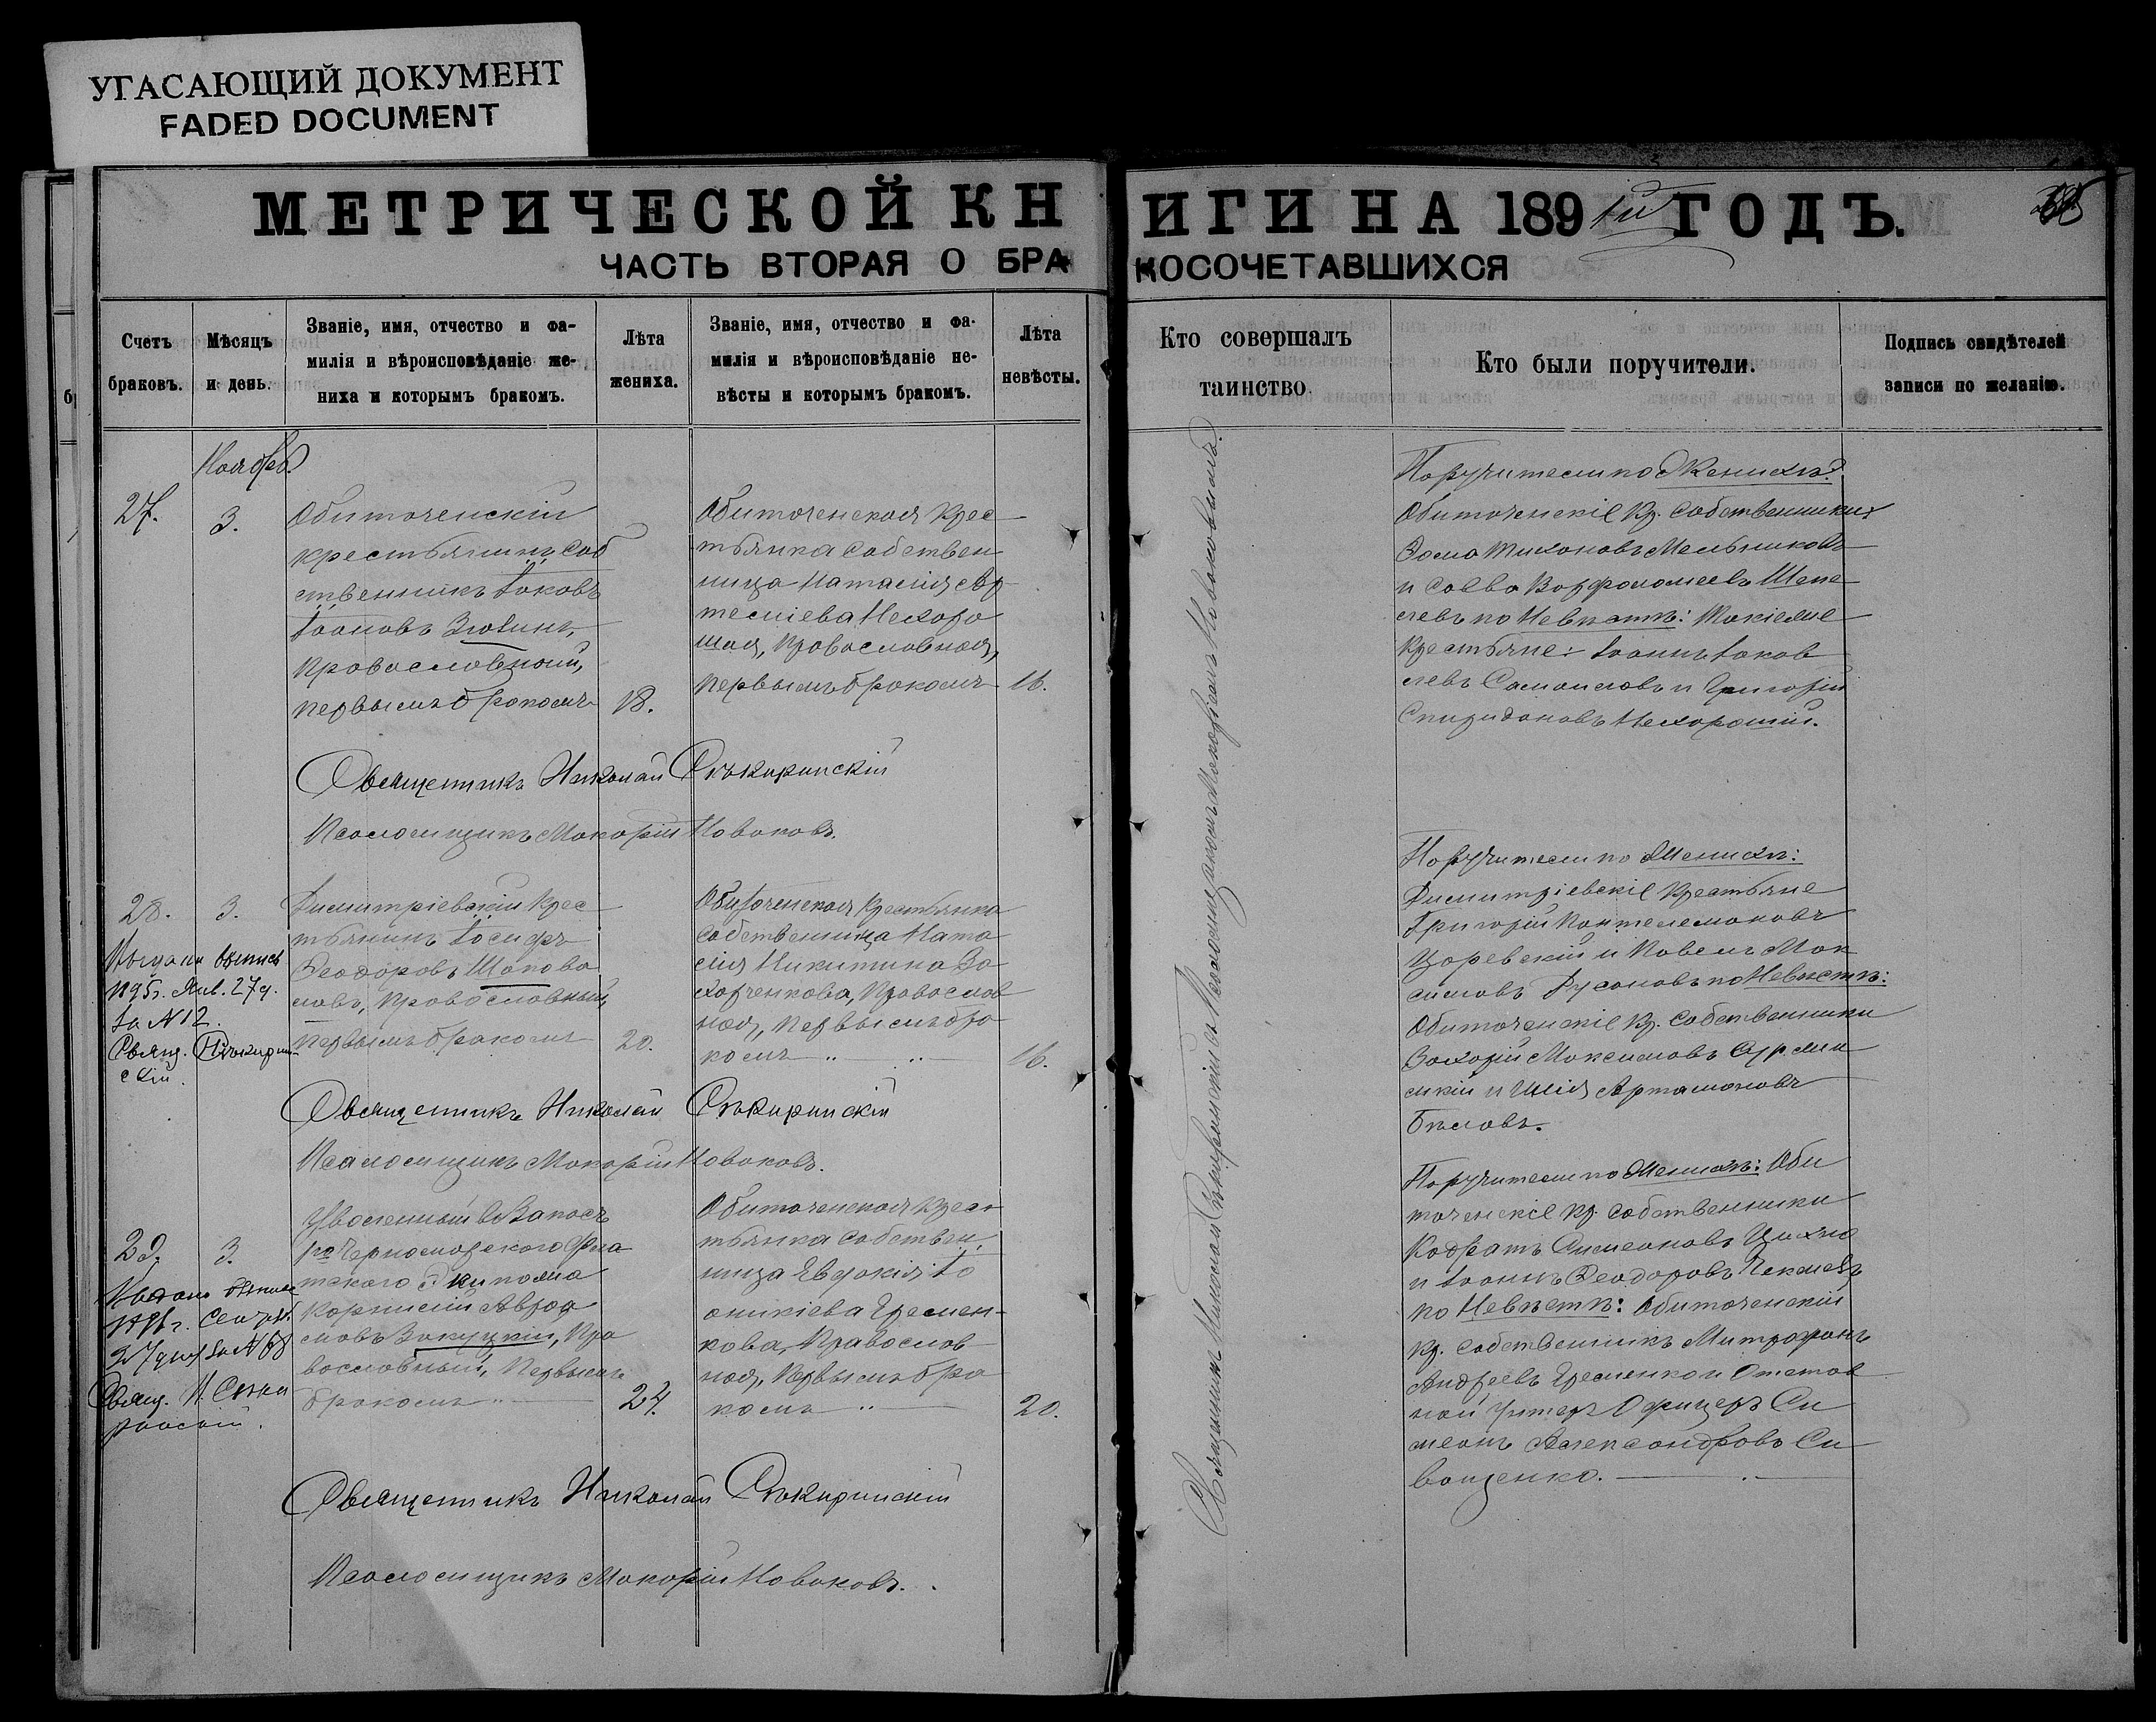 УГАСАЮЩИЙ ДОКУМЕНТ
FADED DOCUMENT
МЕТРИЧЕСКОЙ КН
ИГИ НА 1891й ГОДЪ.
ЧАСТЬ ВТОРАЯ О БРА
КОСОЧЕТАВШИХСЯ
Счетъ
браковъ.
Мѣсяцъ
и день.
Званіе, имя, отчество и фа-
милія и вѣроисповѣданіе же-
ниха и которымъ бракомъ.
Лѣта
жениха.
Званіе, имя, отчество и фа-
милія и вѣроисповѣданіе не-
вѣсты и которымъ бракомъ.
Лѣта
невѣсты.
Кто совершалъ
таинство.
Кто были поручители.
Подпись свидѣтелей
записи по желанію.
Ноябрь
27.
3.
Обиточенскій
крестьянинъ соб
ственникъ Іаковъ
Іоановъ Зюзинъ,
православный,
первымъ бракомъ
18.
Обиточенская крес
тьянка собствен
ница Наталія Ар
темиева Нехоро
шая, православная,
первымъ бракомъ
16.
Поручители по Женихѣ:
Обиточенскіе кр. собственники
Тихоновъ Мельниковъ
и Савва Варфоломеевъ Шепе
левъ по Невѣстѣ: Такіе же
крестьяне: Іоаннъ Іаков
левъ Самойловъ и Григорій
Спиридоновъ Нехорошій.
Священникъ Николай Сѣкиринскій
Псаломщикъ Макарій Новаковъ.
28.
3.
Димитріевскій крес
тьянинъ Іосифъ
Ѳеодоровъ Шапова
ловъ, православный,
первымъ бракомъ
20.
Обиточенская крестьянка
собственница Ната
лія Никитина За
харченкова, православ
ная, первымъ бра
комъ
16.
Выдана выпись
1195г. Янв. 27д.
за №12.
Свящ. Сѣкирин-
скій.
Поручители по Женихѣ:
Димитріевскіе крестьяне
Григорій Пантелемоновъ
Царевскій и Павелъ Мак
симовъ Русановъ по Невѣстѣ:
Обиточенскіе кр. собственники
Захарій Максимовъ
и Илія Артамоновъ
Бѣловъ.
Священникъ Николай Сѣкиринскій
Псаломщикъ Макарій Новаковъ.
29.
3.
Уволенный въ Запасъ
Черноморскаго Фло
тскаго Экипажа
Корнилій Аврор
ловъ Закуцкій, пра
вославный, первымъ
бракомъ
24.
Обиточенская крес
тьянка собствен
ница Евдокія Іо
аникіева Еремен-
кова, православ
ная, первымъ бра
комъ
20.
Свящ. Н. Сѣки
ринскій.
Поручители по Женихѣ: Оби
точенскіе кр. собственники
Кодратъ Симеоновъ
и Іоаннъ Ѳеодоровъ
по Невѣстѣ: Обиточенскій
кр. собственникъ Митрофанъ
Андреевъ Еременко и Отстав
ной Унтеръ Офицеръ Си
меонъ Александровъ Си
ващенко.
Священникъ Николай Сѣкиринскій
Псаломщикъ Макарій Новаковъ.
Священникъ Николай Сѣкиринскій съ Псаломщикомъ Макаріемъ Новаковымъ.